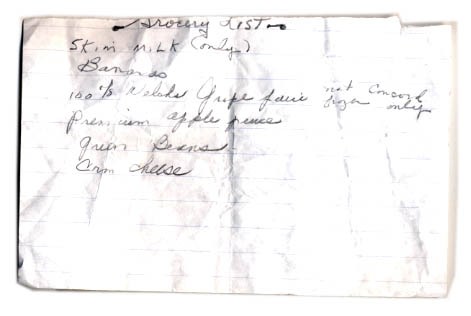 Grocery List
Skim Milk (only)
Bananas
100% Welchs Grape Juice not Concord
frozen only
Premium apple juice
green Beans
Corn cheese